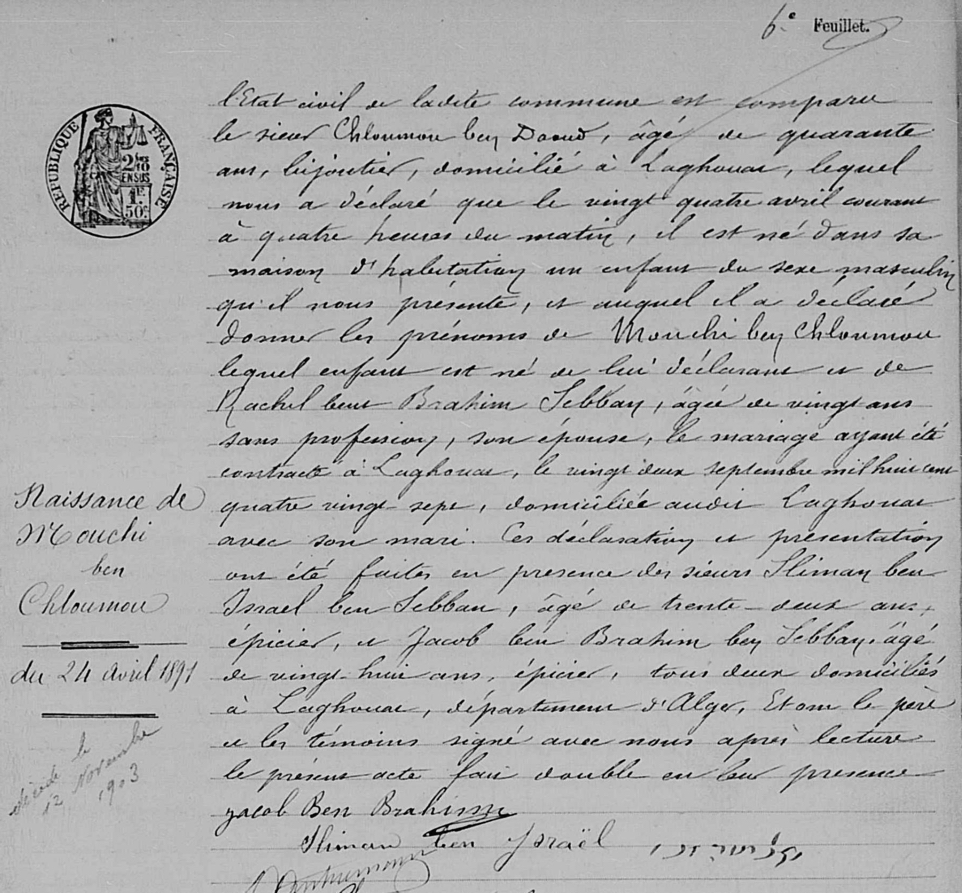 6e Feuillet.
RÉPUBLIQUE FRANÇAISE
2/10es
EN SUS
1F
50c
l'Etat civil de ladite commune est comparu
le sieur Chloumou ben Daoud, âgé de quarante
ans, bijoutier, domicilié à Laghouat, lequel
nous a déclaré que le vingt quatre avril courant
à quatre heures du matin, il est né dans sa
maison d'habitation un enfant du sexe masculin
qu'il nous présente, et auquel il a déclaré
donner les prénoms de Mouchi ben Chloumou
lequel enfant est né de lui déclarant et de
Rachel bent Brahim Sebban, âgée de vingt ans
sans profession, son épouse, le mariage ayant été
contracté à Laghouat, le vingt deux septembre mil huit cent
quatre vingt-sept, domiciliée audit Laghouat
avec son mari. Ces déclaration et présentation
ont été faites en presence des sieurs Sliman ben
Israel ben Sebban, âgé de trente-deux ans,
épicier, et Jacob ben Brahim ben Sebban, âgé
de vingt-huit ans, épicier, tous deux domiciliés
à Laghouat, département d'Alger, Et ont le père
et les témoins signé avec nous après lecture
le présent acte fait double en leur presence
Jacob Ben Brahim
Sliman ben Israël
Naissance de
Mouchi
ben
Chloumou
du 24 avril 1891
décédé le
12 Novembre
1903